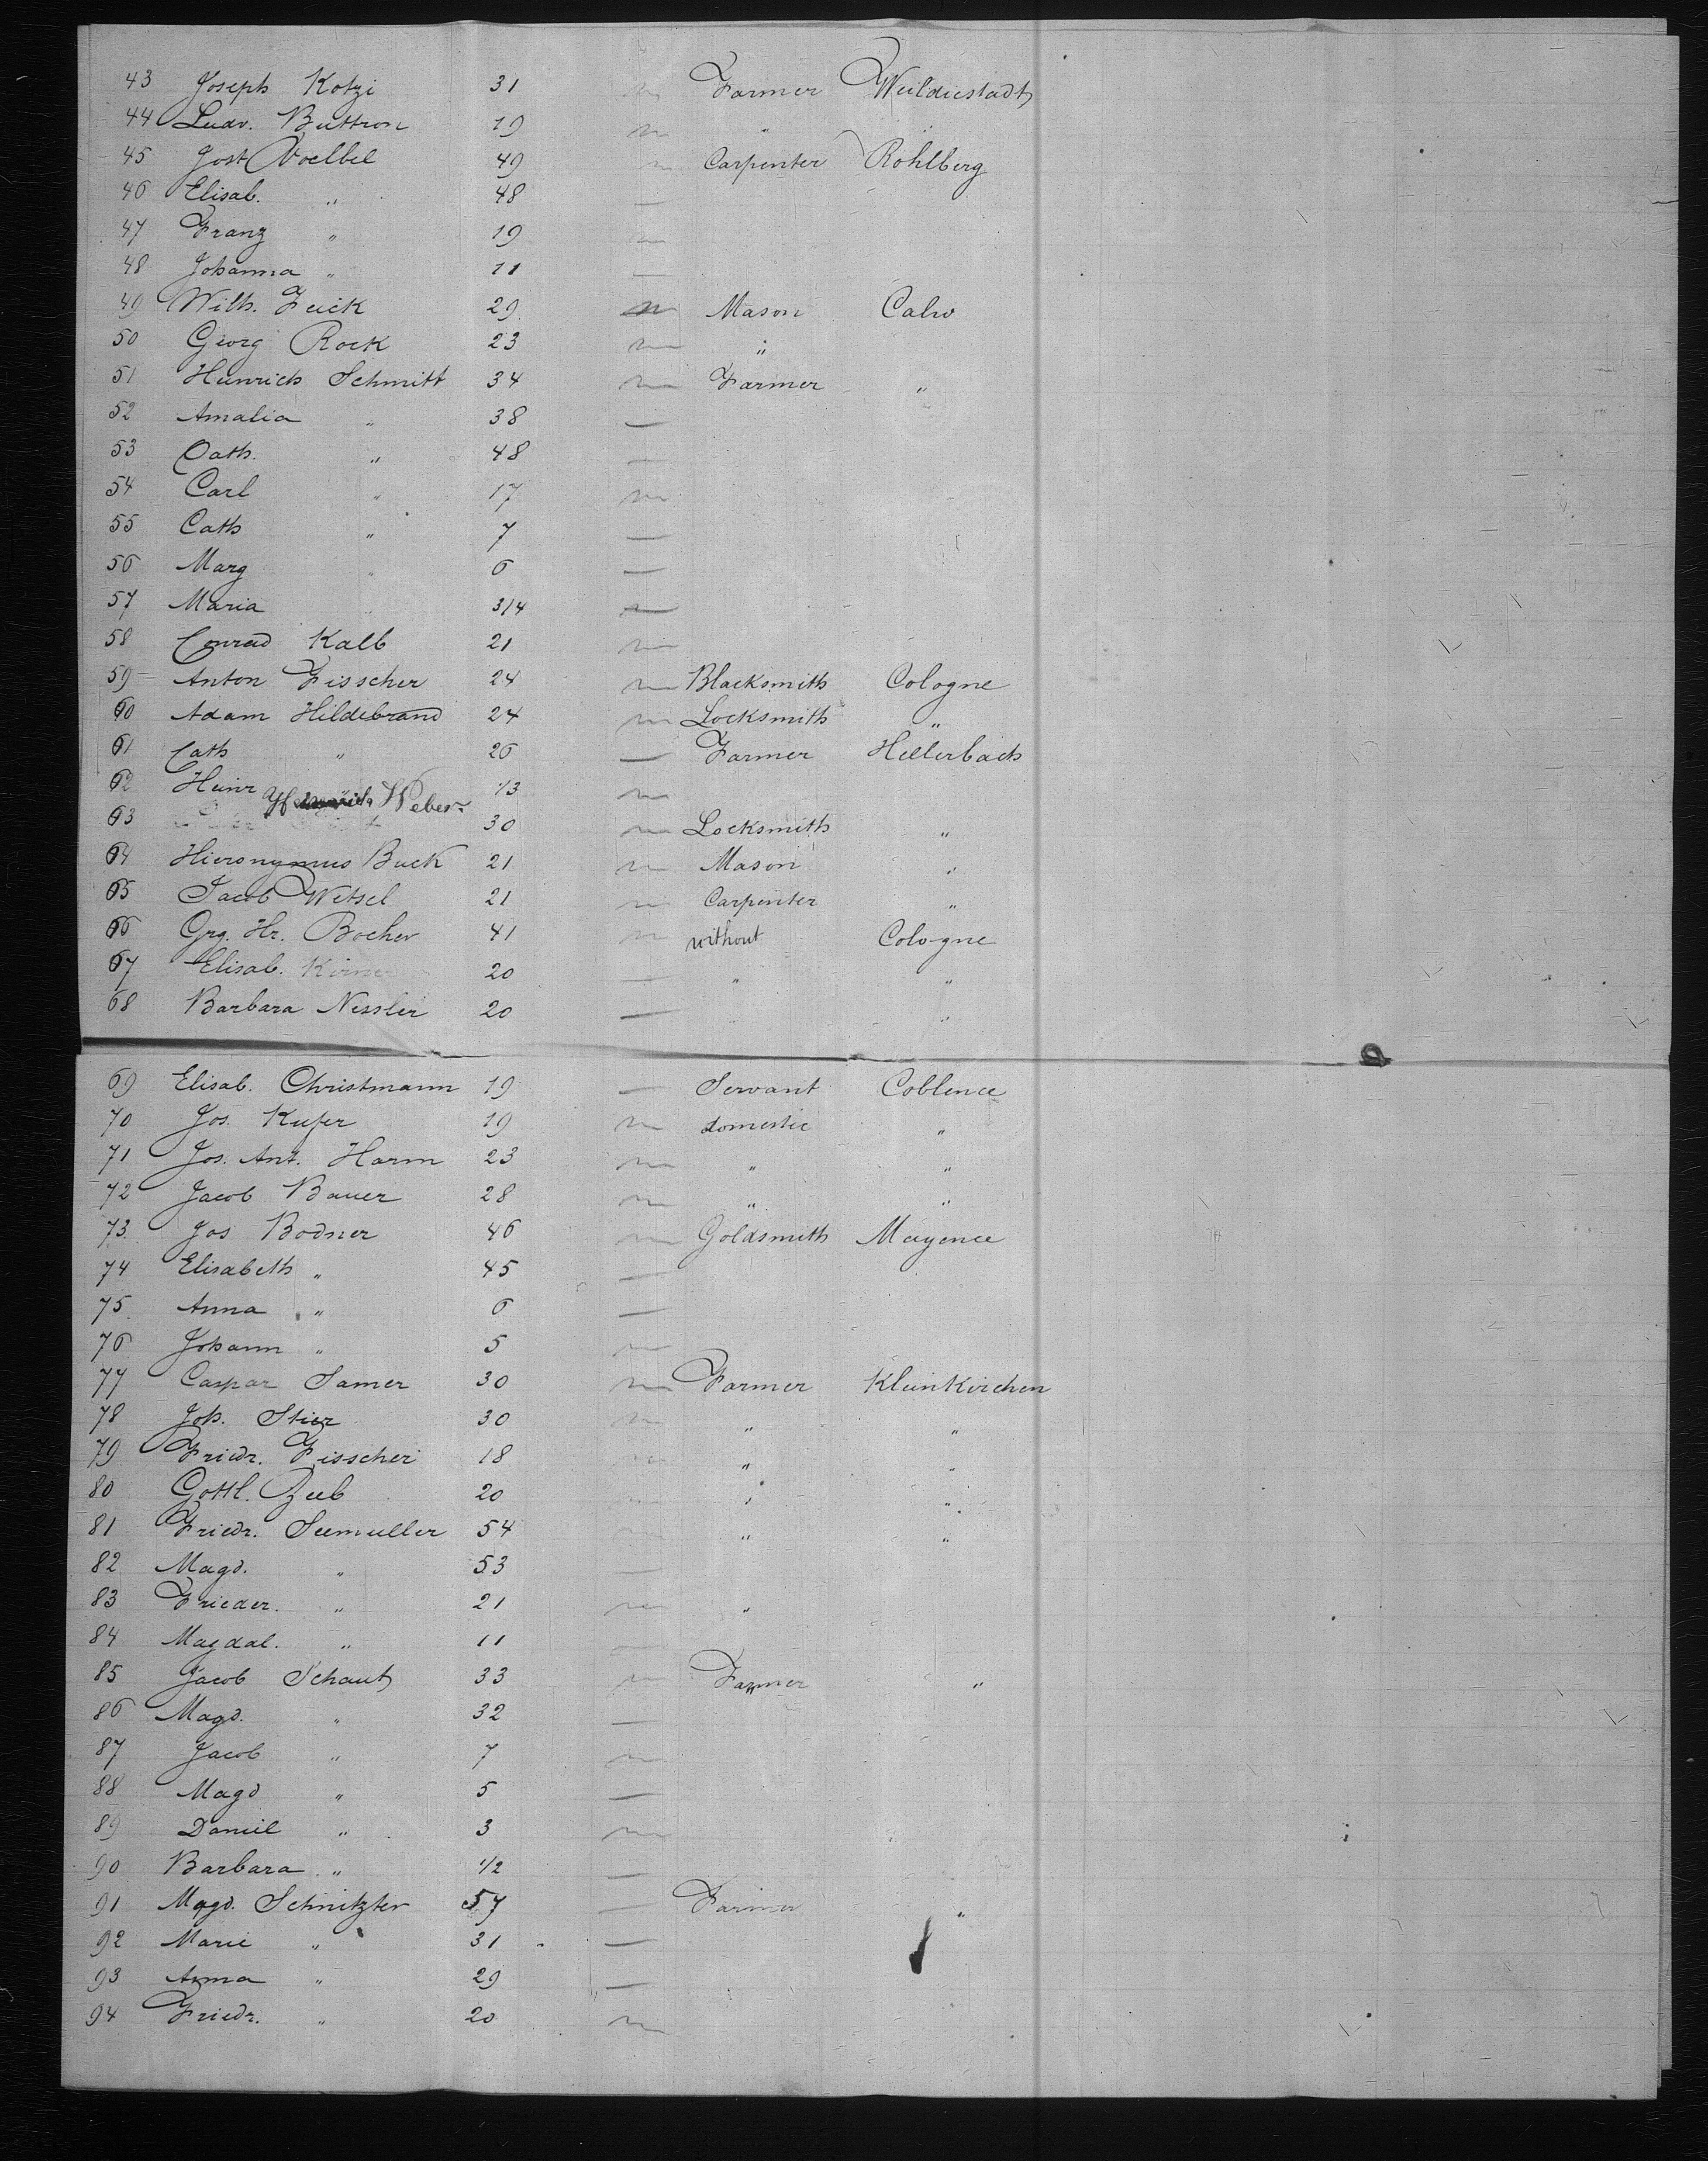 43 Joseph Kotzi 31 m Farmer Weildiestadt
44 Ludv. Buttron 19 m " "
45 Jost Voelbel 49 m Carpenter Rohlberg
46 Elisab. " 48 —
47 Franz " 19 m
48 Johanna " 11 —
49 Wilh. Feick 29 m Mason Calw
50 Georg Rock 23 m "
51 Heinrich Schmitt 34 m Farmer "
52 Amalia " 38 —
53 Cath. " 48 —
54 Carl " 17 m
55 Cath " 7 —
56 Marg " 6 —
57 Maria " 3/4 —
58 Conrad Kalb 21 m
59 Anton Fisscher 24 m Blacksmith Cologne
60 Adam Hildebrand 24 m Locksmith "
61 Cath " 26 — Farmer Hellerbach
62 Heinr " 13 m
63 Heinrich Weber 30 m Locksmith "
64 Hieronymus Buck 21 m Mason "
65 Jacob Wetsel 21 m Carpenter "
66 Grg. Hr. Bocher 41 m without Cologne
67 Elisab. 20 — " "
68 Barbara Nessler 20 — " "
69 Elisab. Christmann 19 — Servant Coblence
70 Jos. Kufer 19 m domestic "
71 Jos. Ant. Harm 23 m " "
72 Jacob Bauer 28 m " "
73 Jos Bodner 46 m Goldsmith Mayence
74 Elisabeth " 45 —
75 Anna " 6 —
76 Johann " 5 m
77 Caspar Samer 30 m Farmer Kleinkirchen
78 Joh. Stier 30 m " "
79 Friedr. Fisscher 18 m " "
80 Gottl. Zeeb 20 m " "
81 Friedr. Seemuller 54 m " "
82 Magd. " 53 —
83 Frieder. " 21 m "
84 Magdal. " 11 —
85 Jacob Schaut 33 m Farmer "
86 Magd. " 32 —
87 Jacob " 7 m
88 Magd " 5 —
89 Daniel " 3 m
90 Barbara " 1/2 —
91 Magd. Schnitzler 57 — Farmer "
92 Marie " 31 —
93 Anna " 29 —
94 Friedr. " 20 m